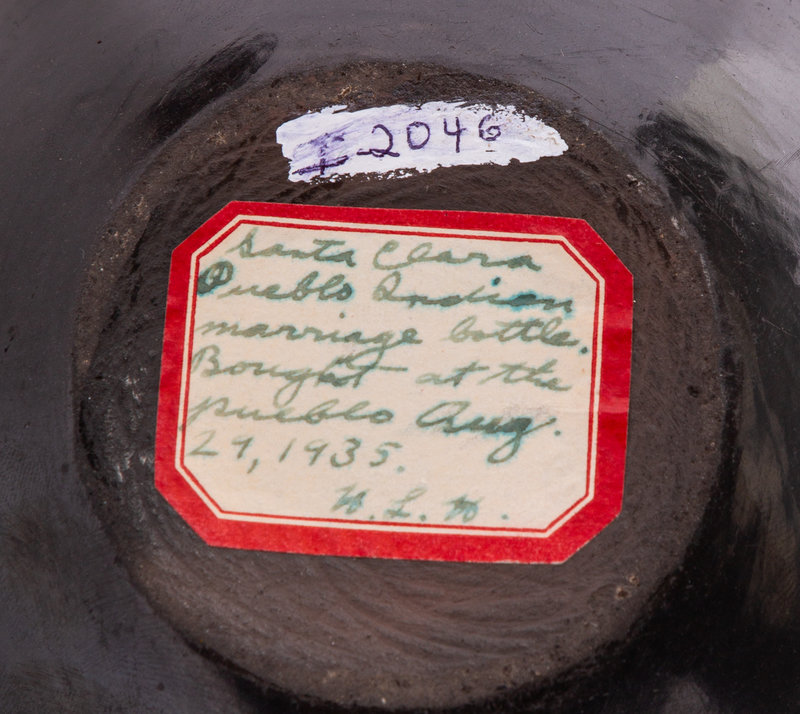 2046
Santa Clara
Pueblo Indian
marriage bottle.
Bought at the
pueblo Aug.
29, 1935.